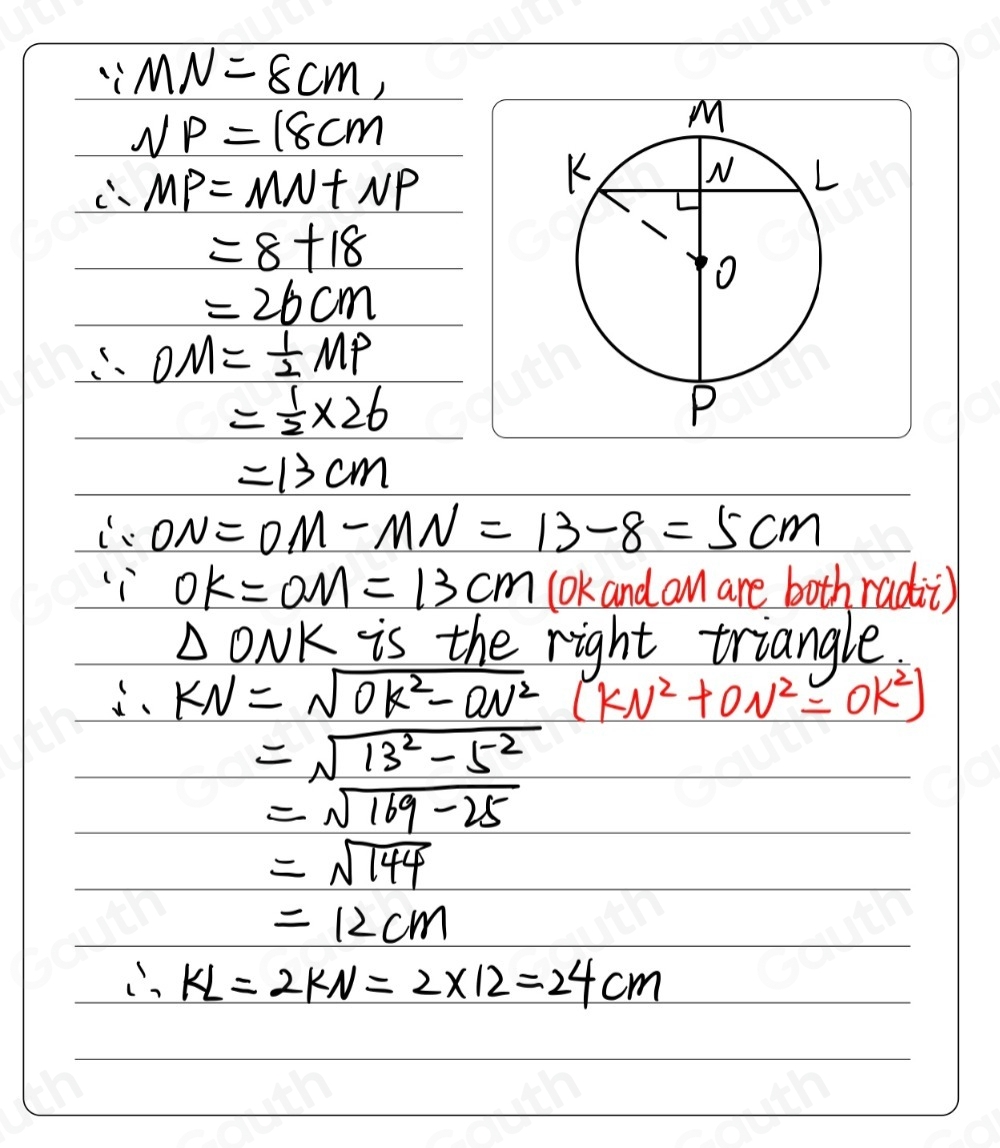 ∵ MN = 8cm,
NP = 18cm
∴ MP = MN + NP
= 8 + 18
= 26cm
∴ OM = 1/2 MP
= 1/2 × 26
= 13cm
∴ ON = OM - MN = 13 - 8 = 5cm
∵ OK = OM = 13cm (OK and OM are both radii)
△ ONK is the right triangle.
∴ KN = √(OK² - ON²) (KN² + ON² = OK²)
= √(13² - 5²)
= √(169 - 25)
= √144
= 12cm
∴ KL = 2KN = 2 × 12 = 24cm
M
K
N
L
O
P
Gauth